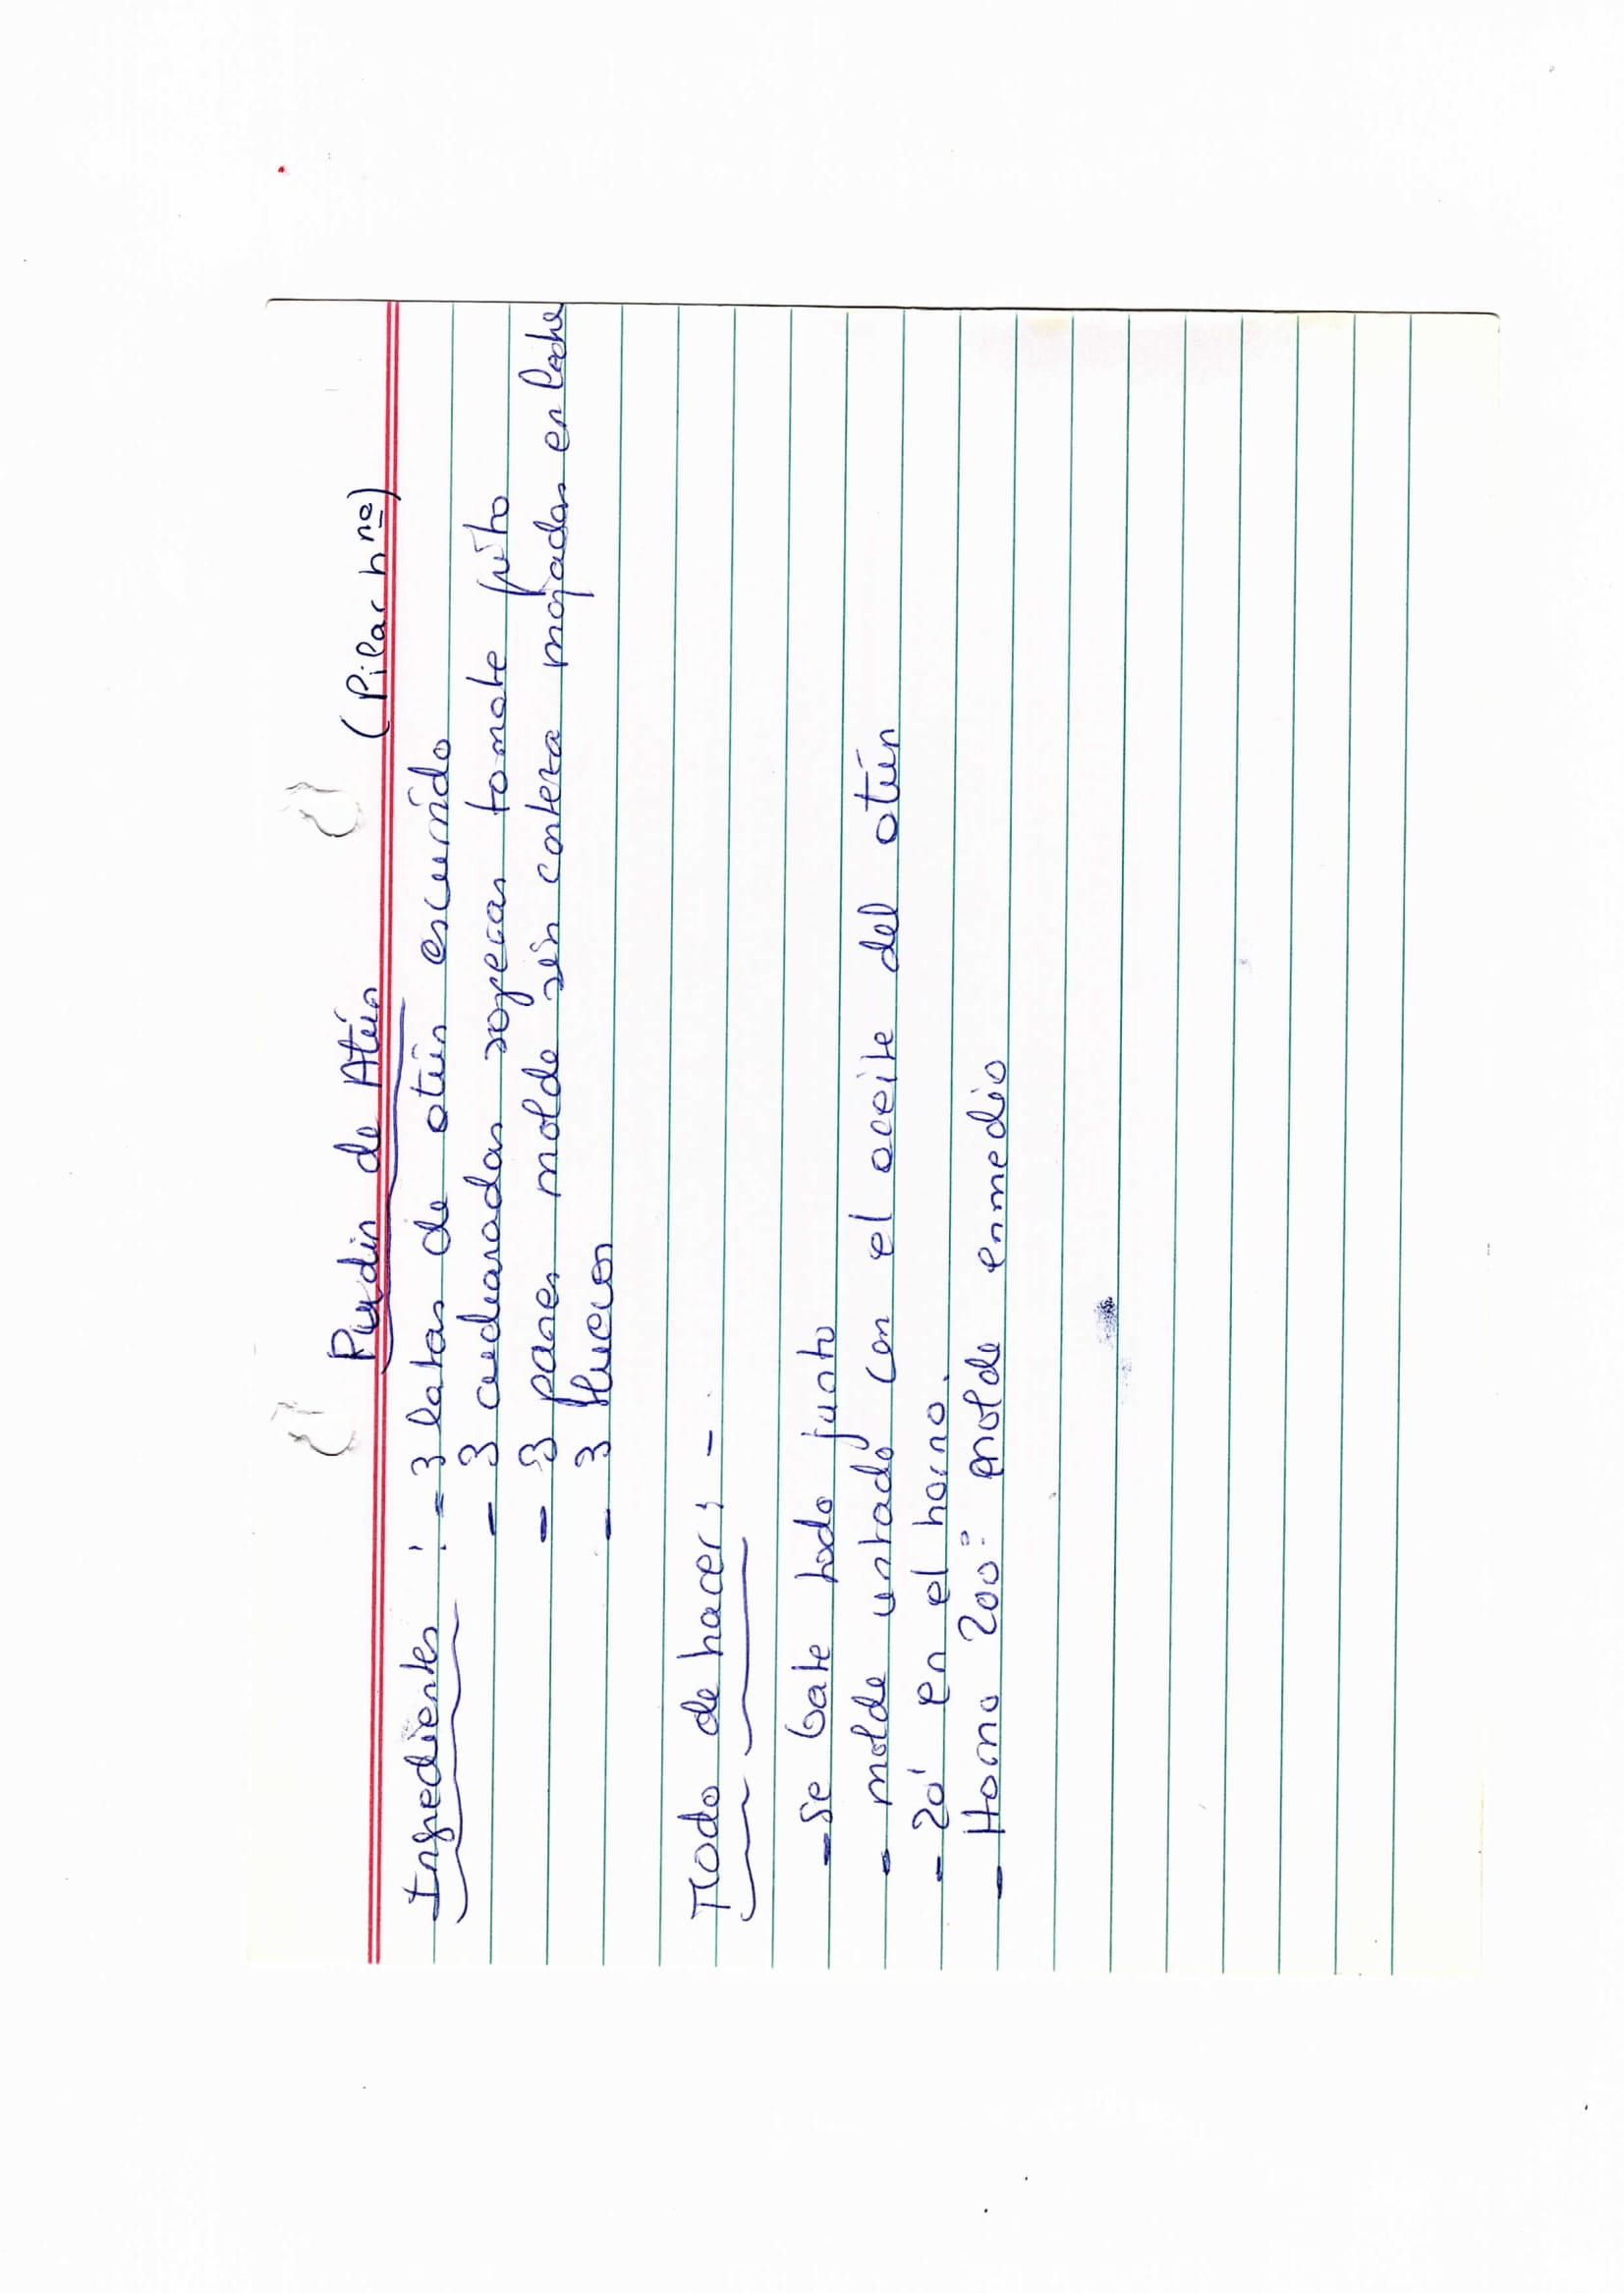 Pudin de Atún (Pilar hna)
Ingredientes : - 3 latas de atún escurrido
- 3 cucharadas soperas tomate frito
- 3 panes molde sin corteza mojadas en leche
- 3 Huevos
Modo de hacer; -
- Se bate todo junto
- molde untado con el aceite del atún
- 20' en el horno.
- Horno 200º molde enmedio